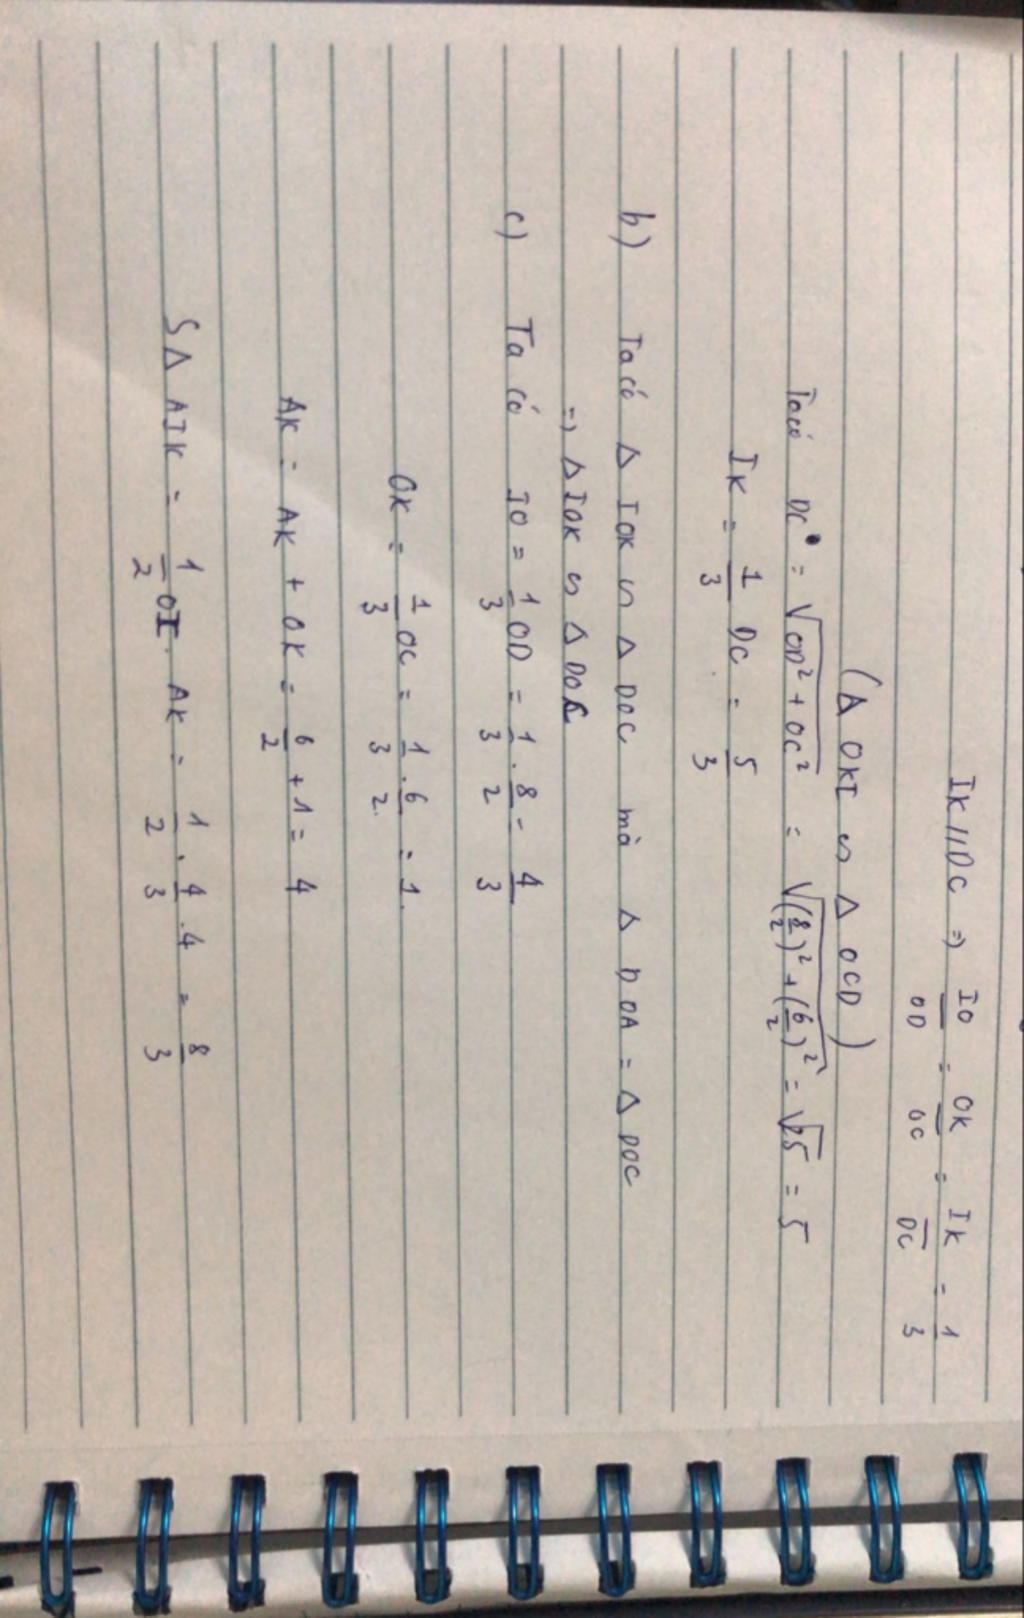 IK // DC => IO/OD = OK/OC = IK/DC = 1/3
(Δ OKI ∽ Δ OCD)
Ta có DC = √(OD² + OC²) = √((8/2)² + (6/2)²) = √25 = 5
IK = 1/3 DC = 5/3
b) Ta có Δ IOK ∽ Δ DOC mà Δ DOA = Δ DOC
=> Δ IOK ∽ Δ DOA
c) Ta có IO = 1/3 OD = 1/3 . 8/2 = 4/3
OK = 1/3 OC = 1/3 . 6/2 = 1.
AK = AK + OK = 6/2 + 1 = 4
S Δ AIK = 1/2 OI. AK = 1/2 . 4/3 . 4 = 8/3